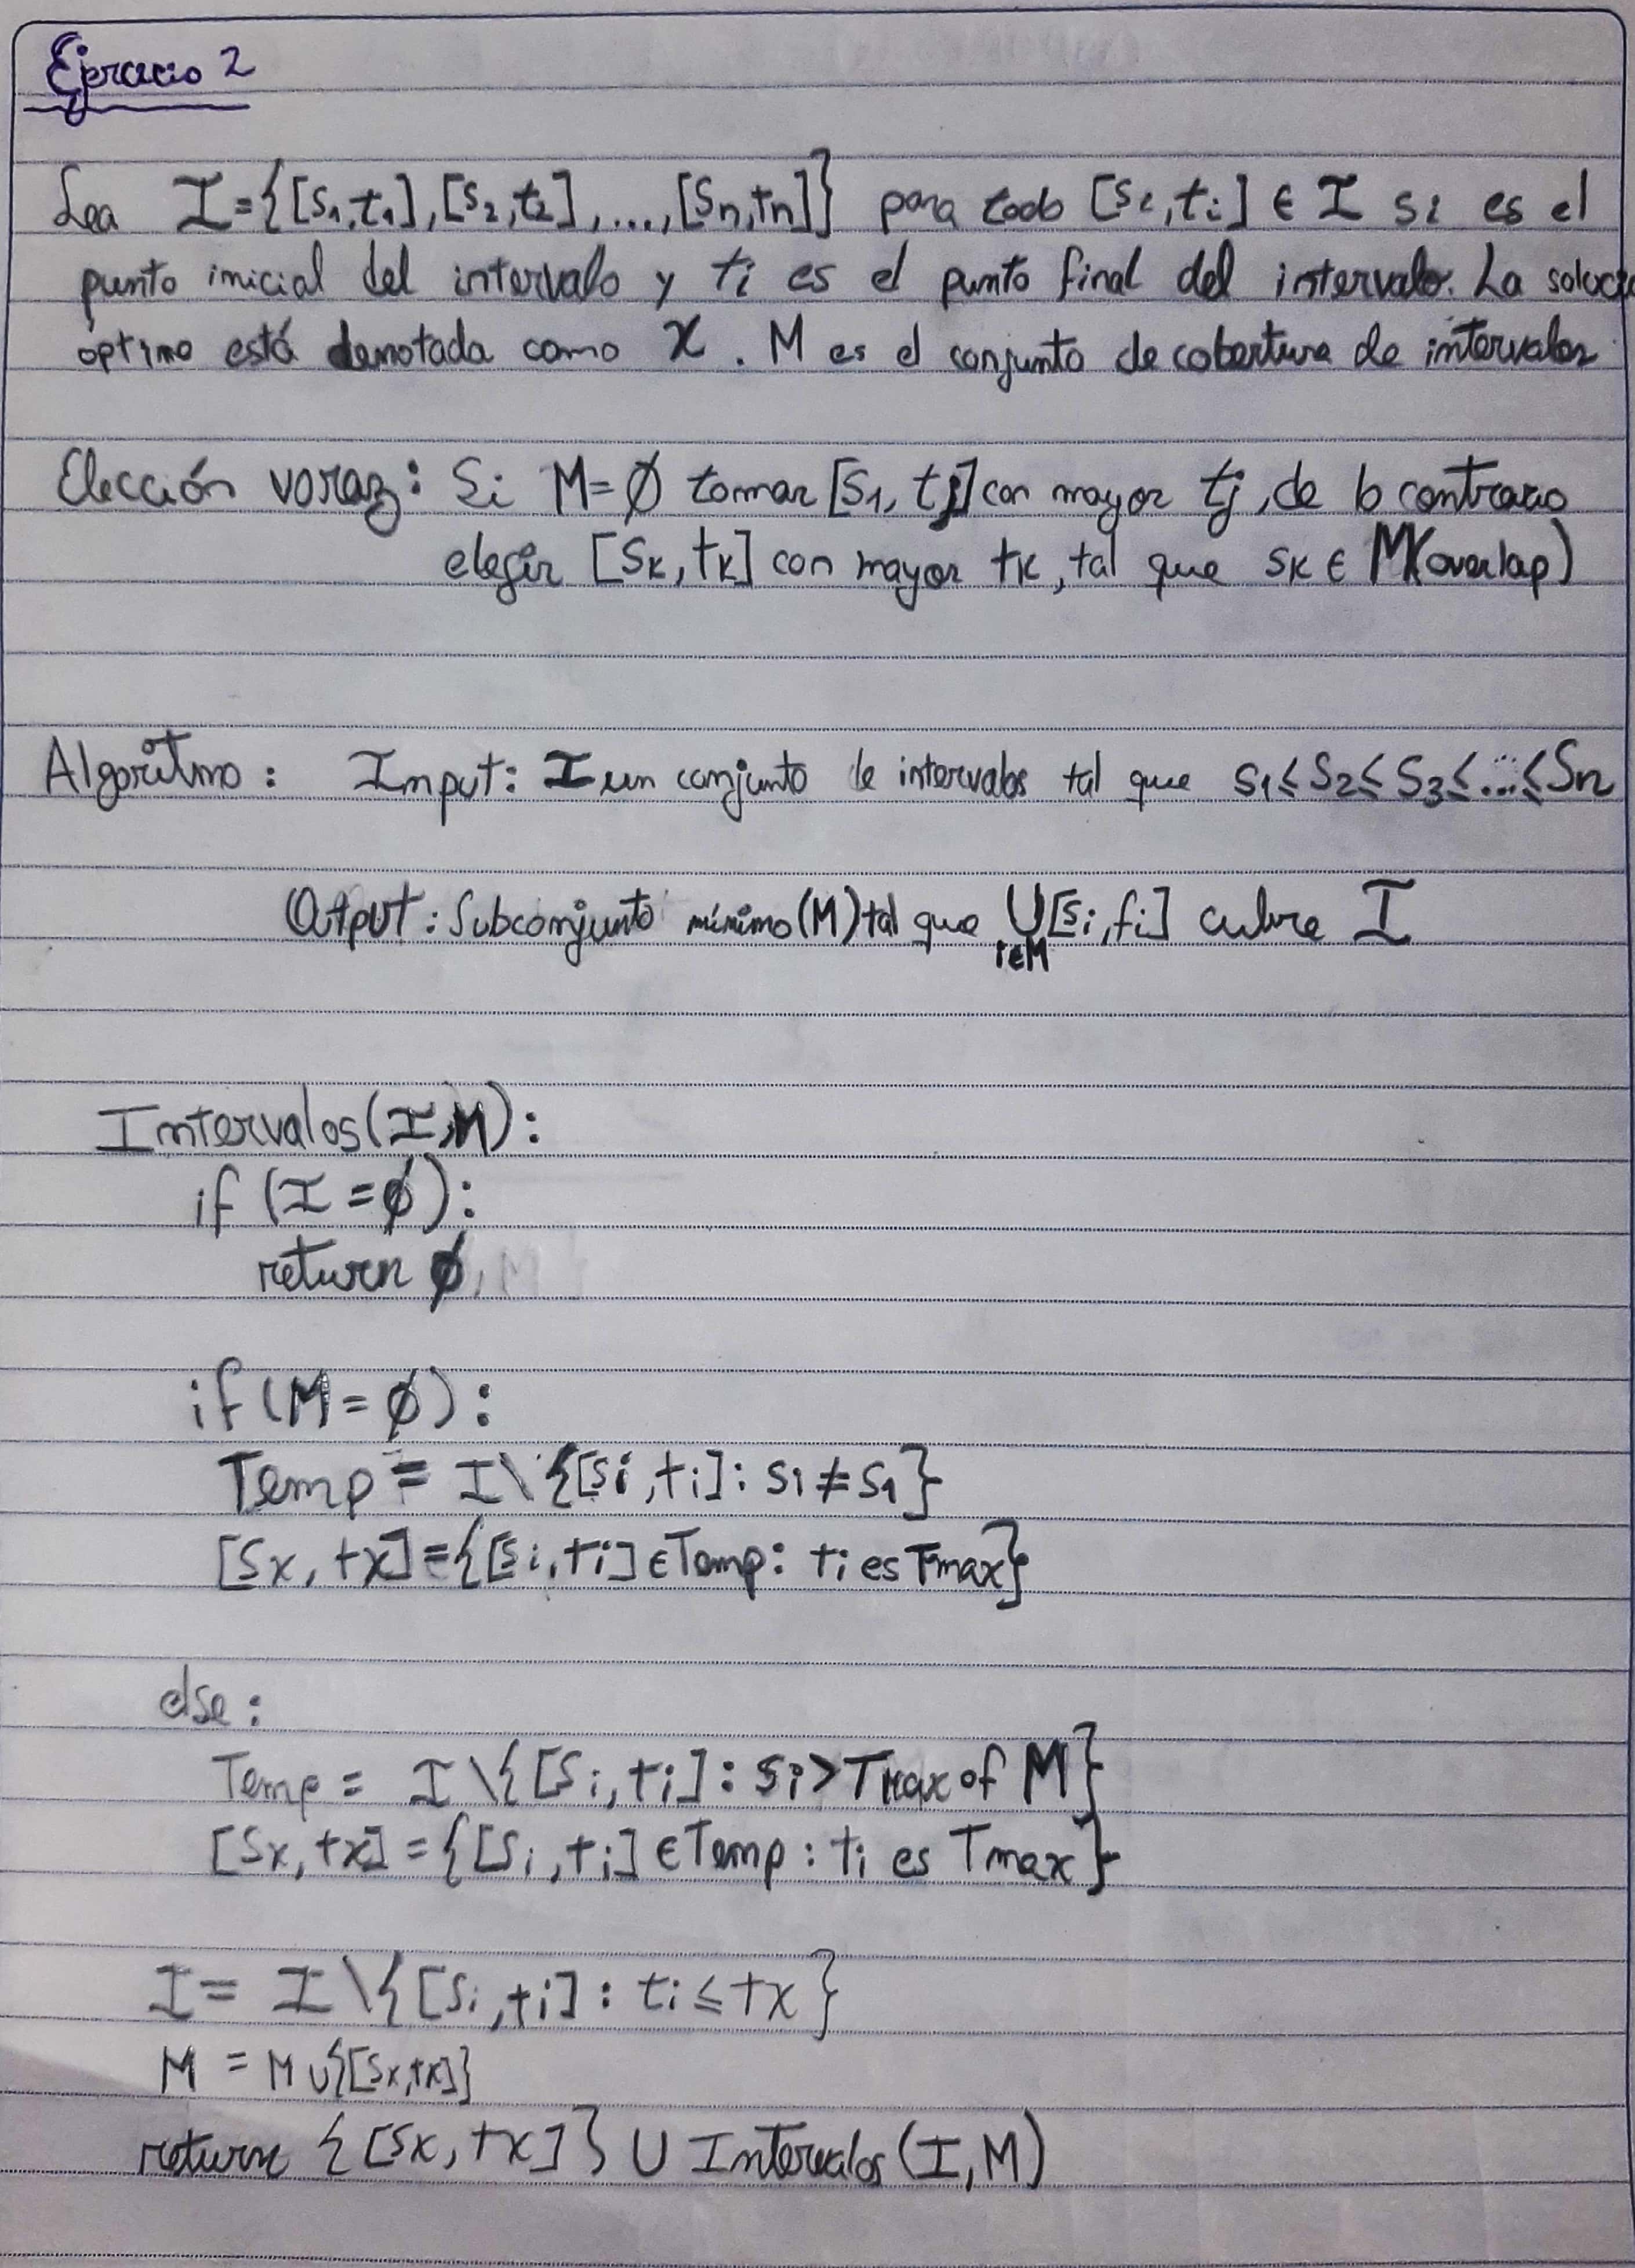 Ejercicio 2
Sea I = {[s1,t1],[s2,t2],...,[sn,tn]} para todo [si,ti] ∈ I si es el
punto inicial del intervalo y ti es el punto final del intervalo. La soluci
óptima está denotada como X. M es el conjunto de cobertura de intervalos
Elección voraz: Si M=∅ tomar [s1,tj] con mayor tj, de lo contrario
elegir [sk,tk] con mayor tk, tal que sk ∈ M (overlap)
Algoritmo: Input: I un conjunto de intervalos tal que s1≤s2≤s3≤...≤sn
Output: Subconjunto mínimo (M) tal que ⋃i∈M [si,fi] cubre I
Intervalos(I,M):
if (I = ∅):
return ∅
if (M = ∅):
Temp = I\{[si,ti]: si ≠ s1}
[sx,tx] = {[si,ti] ∈ Temp: ti es Tmax}
else:
Temp = I\{[si,ti]: si > Tmax of M}
[sx,tx] = {[si,ti] ∈ Temp: ti es Tmax}
I = I\{[si,ti]: ti ≤ tx}
M = M ∪ {[sx,tx]}
return {[sx,tx]} ∪ Intervalos(I,M)